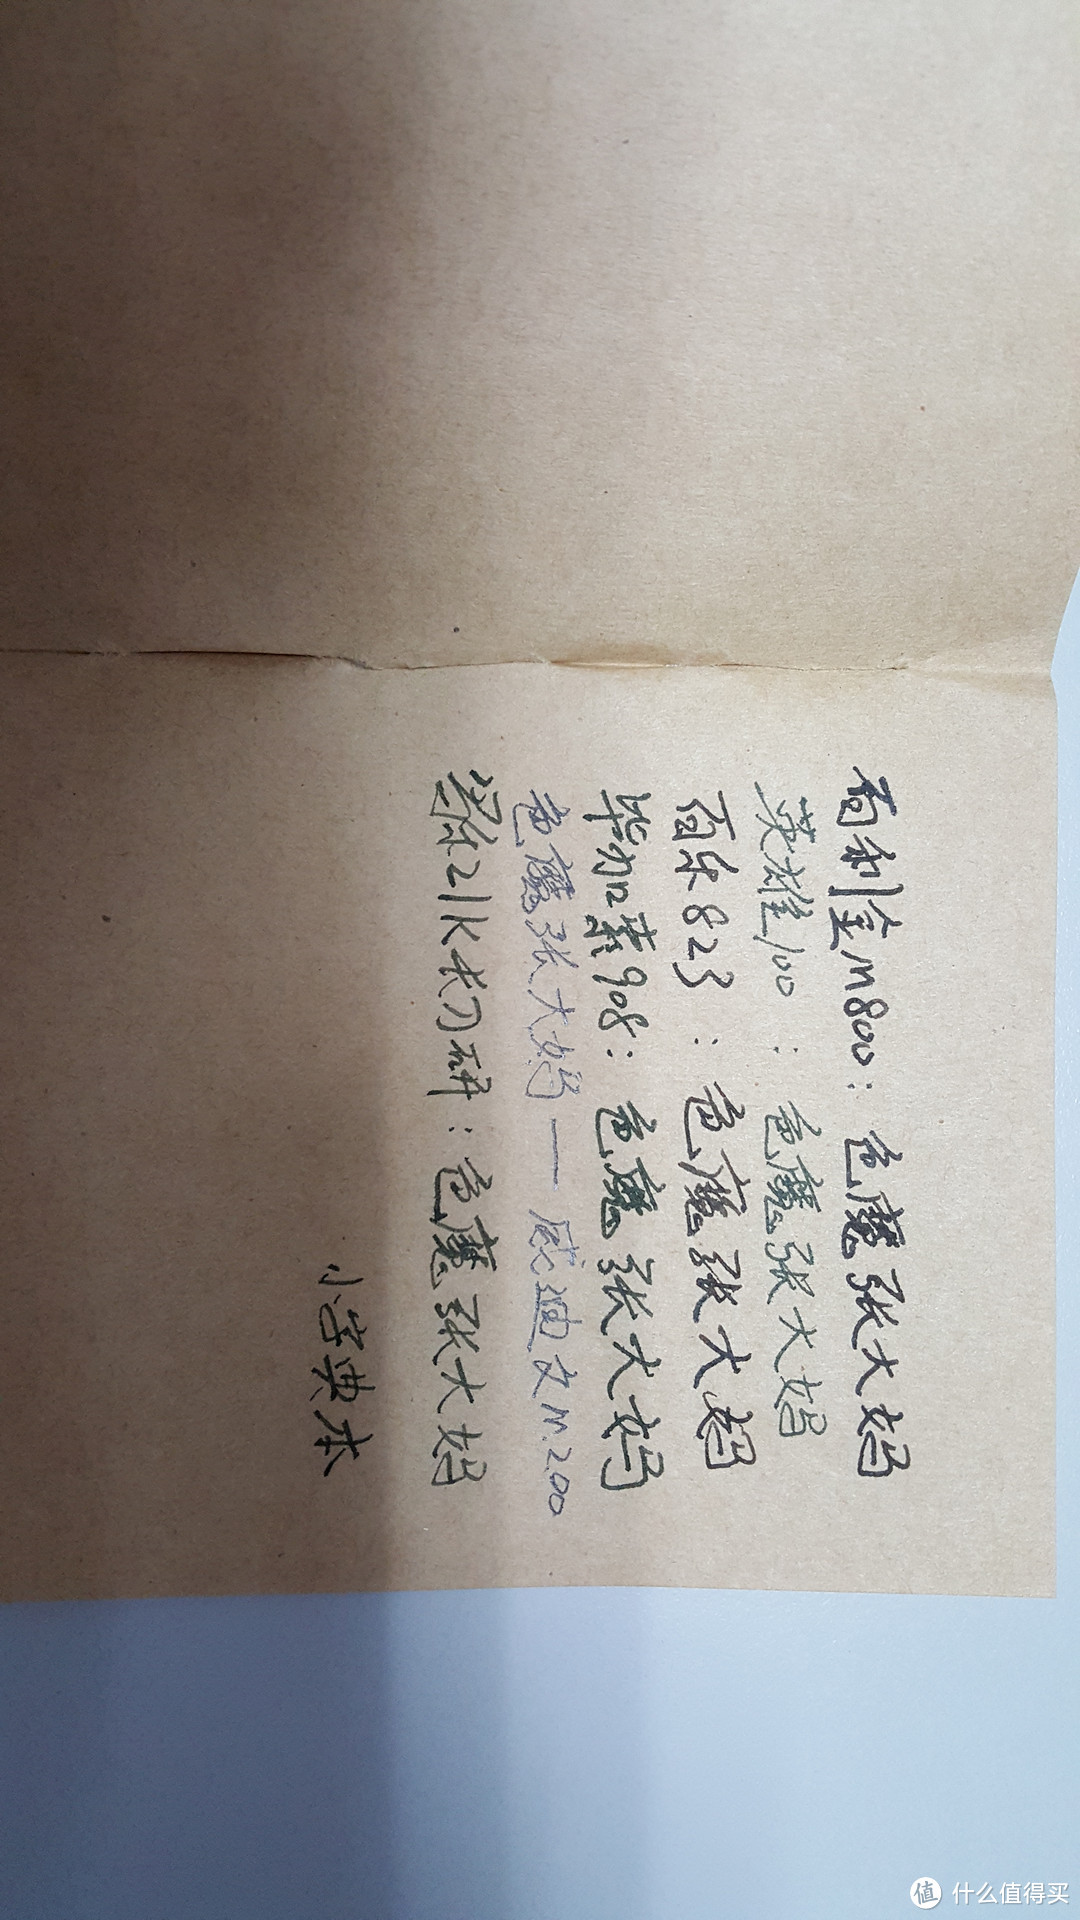 百利金M800：色魔张大妈
英雄100：色魔张大妈
百乐823：色魔张大妈
毕加索908：色魔张大妈
色魔张大妈——威迪文M.200
写乐21K长刀研：色魔张大妈
小字典本
值 什么值得买